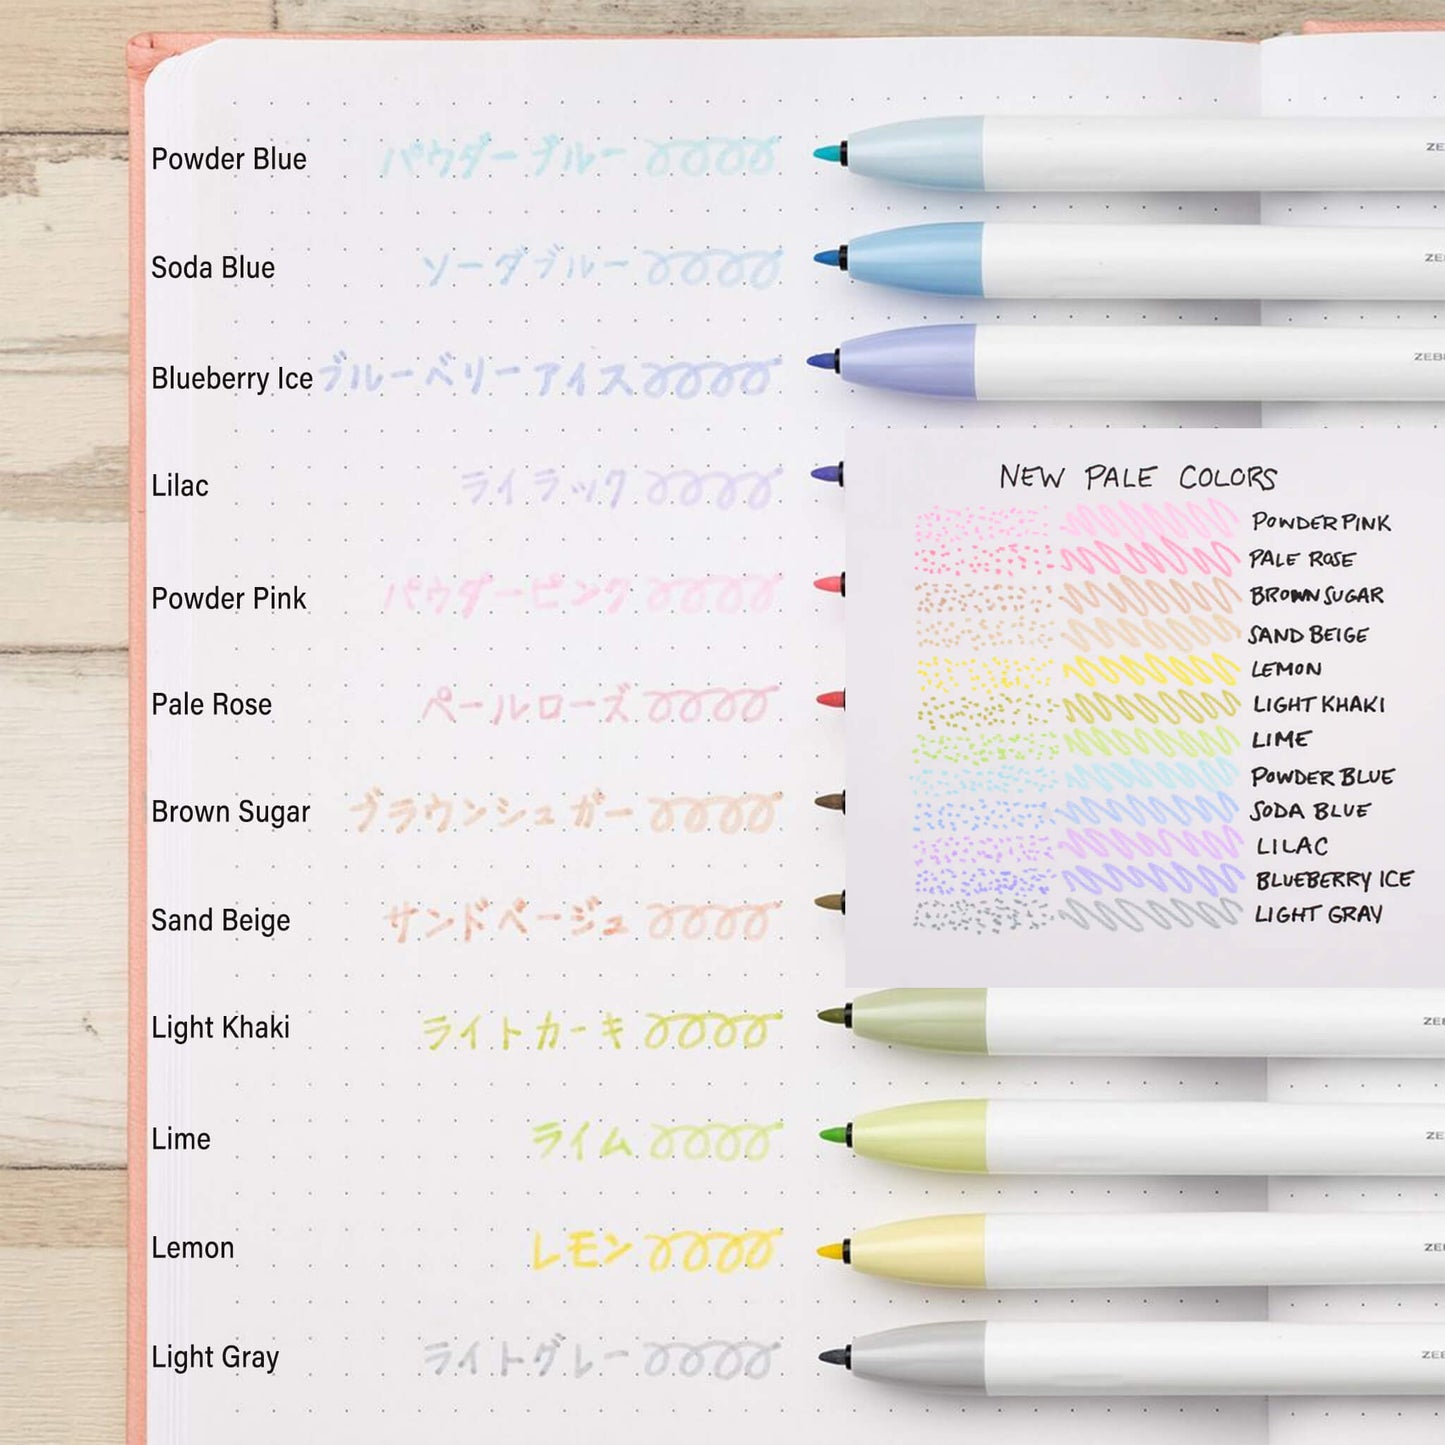 Powder Blue パウダーブルー
Soda Blue ソーダブルー
Blueberry Ice ブルーベリーアイス
ZEB
Lilac ライラック
Powder Pink パウダーピンク
Pale Rose ペールローズ
Brown Sugar ブラウンシュガー
Sand Beige サンドベージュ
Light Khaki ライトカーキ
Lime ライム
Lemon レモン
Light Gray ライトグレー
NEW PALE COLORS
POWDER PINK
PALE ROSE
BROWN SUGAR
SAND BEIGE
LEMON
LIGHT KHAKI
LIME
POWDER BLUE
SODA BLUE
LILAC
BLUEBERRY ICE
LIGHT GRAY